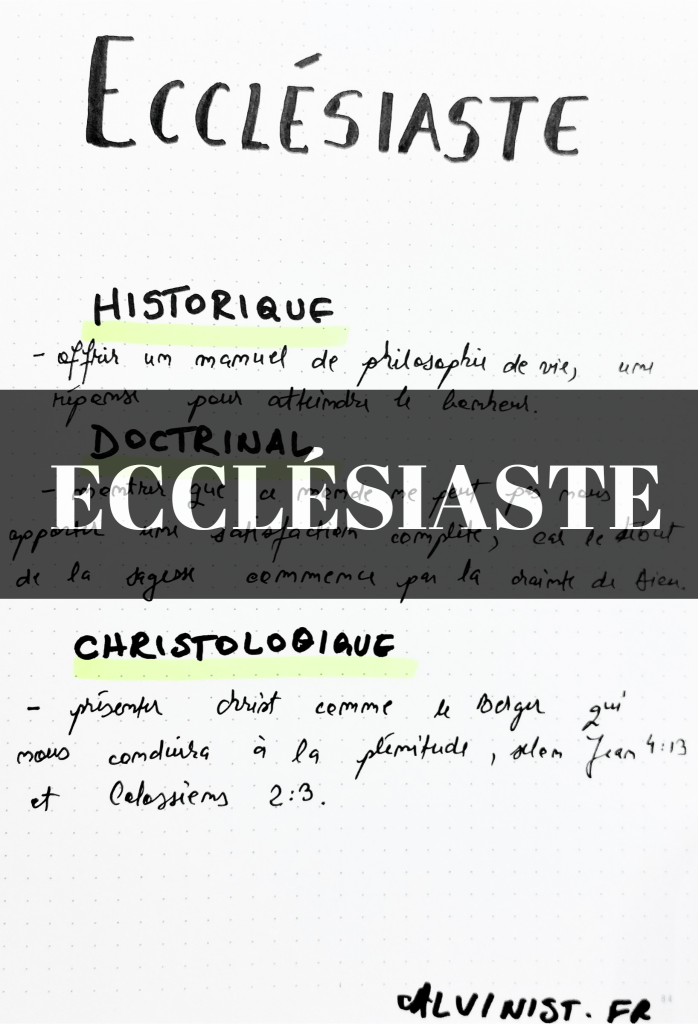 ECCLÉSIASTE
HISTORIQUE
- offrir un manuel de philosophie de vie, une
réponse pour atteindre le bonheur.
DOCTRINAL
ECCLÉSIASTE
- montrer que ce monde ne peut pas nous
apporter une satisfaction complète, car le début
de la sagesse commence par la crainte de Dieu.
CHRISTOLOGIQUE
- présenter Christ comme le Berger qui
nous conduira à la plénitude, selon Jean 4:13
et Colossiens 2:3.
CALVINIST.FR